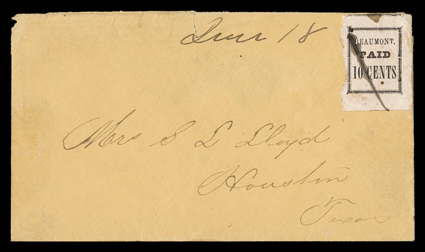 Jun 18
BEAUMONT,
PAID
10 CENTS
Mrs S L Lloyd
Houston
Texas